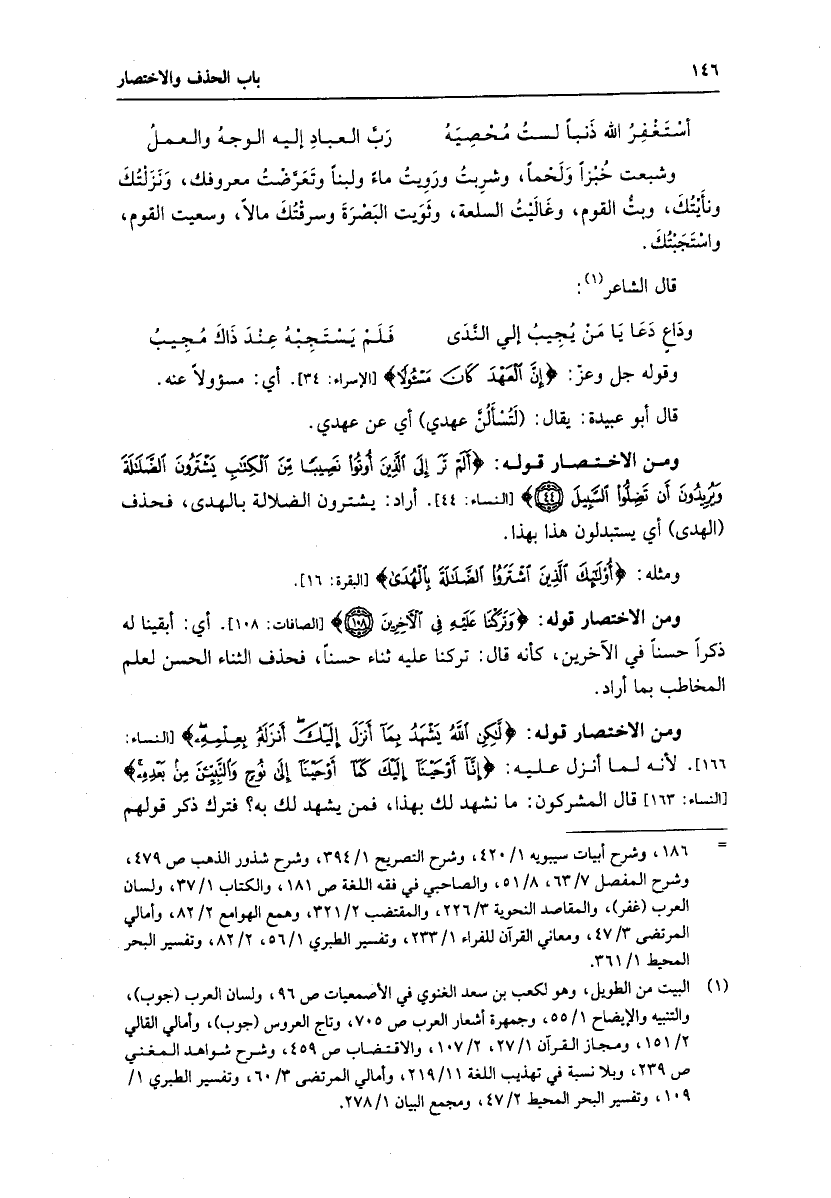 ١٤٦ باب الحذف والاختصار
أسْتَغْفِرُ الله ذَنباً لستُ مُحْصِيَهُ رَبَّ العبادِ إليه الوجهُ والعملُ
وشبعت خُبْزاً وَلَحْماً، وشربتُ ورَويتُ ماءً ولبناً وتَعَرَّضْتُ معروفك، وَنَزَلْتُكَ
ونأَيْتُكَ، وبتُّ القوم، وغَالَيْتُ السلعة، وثَوَيت البَصْرَةَ وسرقْتُكَ مالاً، وسعيت القوم،
واسْتَجَبْتُكَ.
قال الشاعر(١):
ودَاعٍ دَعَا يَا مَنْ يُجيبُ إلي النَّدَى فَلَمْ يَسْتَجِبْهُ عِنْدَ ذَاكَ مُجِيبُ
وقوله جل وعزّ: ﴿إِنَّ ٱلْعَهْدَ كَانَ مَسْئُولًا﴾ [الإسراء: ٣٤]. أي: مسؤولاً عنه.
قال أبو عبيدة: يقال: (لَتُسْأَلُنَّ عهدي) أي عن عهدي.
ومن الاختصار قوله: ﴿أَلَمْ تَرَ إِلَى ٱلَّذِينَ أُوتُوا۟ نَصِيبًا مِّنَ ٱلْكِتَٰبِ يَشْتَرُونَ ٱلضَّلَٰلَةَ
وَيُرِيدُونَ أَن تَضِلُّوا۟ ٱلسَّبِيلَ ٤٤﴾ [النساء: ٤٤]. أراد: يشترون الضلالة بالهدى، فحذف
(الهدى) أي يستبدلون هذا بهذا.
ومثله: ﴿أُو۟لَٰٓئِكَ ٱلَّذِينَ ٱشْتَرَوُا۟ ٱلضَّلَٰلَةَ بِٱلْهُدَىٰ﴾ [البقرة: ١٦].
ومن الاختصار قوله: ﴿وَتَرَكْنَا عَلَيْهِ فِى ٱلْءَاخِرِينَ ١٠٨﴾ [الصافات: ١٠٨]. أي: أبقينا له
ذكراً حسناً في الآخرين، كأنه قال: تركنا عليه ثناء حسناً، فحذف الثناء الحسن لعلم
المخاطب بما أراد.
ومن الاختصار قوله: ﴿لَّٰكِنِ ٱللَّهُ يَشْهَدُ بِمَآ أَنزَلَ إِلَيْكَ ۖ أَنزَلَهُۥ بِعِلْمِهِۦ ۖ﴾ [النساء:
١٦٦]. لأنه لما أنزل عليه: ﴿إِنَّآ أَوْحَيْنَآ إِلَيْكَ كَمَآ أَوْحَيْنَآ إِلَىٰ نُوحٍ وَٱلنَّبِيِّـۧنَ مِنۢ بَعْدِهِۦ ۚ﴾
[النساء: ١٦٣] قال المشركون: ما نشهد لك بهذا، فمن يشهد لك به؟ فترك ذكر قولهم
= ١٨٦، وشرح أبيات سيبويه ١/ ٤٢٠، وشرح التصريح ١/ ٣٩٤، وشرح شذور الذهب ص ٤٧٩،
وشرح المفصل ٧/ ٦٣، ٨/ ٥١، والصاحبي في فقه اللغة ص ١٨١، والكتاب ١/ ٣٧، ولسان
العرب (غفر)، والمقاصد النحوية ٣/ ٢٢٦، والمقتضب ٢/ ٣٢١، وهمع الهوامع ٢/ ٨٢، وأمالي
المرتضى ٣/ ٤٧، ومعاني القرآن للفراء ١/ ٢٣٣، وتفسير الطبري ١/ ٥٦، ٢/ ٨٢، وتفسير البحر
المحيط ١/ ٣٦١.
(١) البيت من الطويل، وهو لكعب بن سعد الغنوي في الأصمعيات ص ٩٦، ولسان العرب (جوب)،
والتنبيه والإيضاح ١/ ٥٥، وجمهرة أشعار العرب ص ٧٠٥، وتاج العروس (جوب)، وأمالي القالي
٢/ ١٥١، ومجاز القرآن ١/ ٢٧، ٢/ ١٠٧، والاقتضاب ص ٤٥٩، وشرح شواهد المغني
ص ٢٣٩، وبلا نسبة في تهذيب اللغة ١١/ ٢١٩، وأمالي المرتضى ٣/ ٦٠، وتفسير الطبري ١/
١٠٩، وتفسير البحر المحيط ٢/ ٤٧، ومجمع البيان ١/ ٢٧٨.